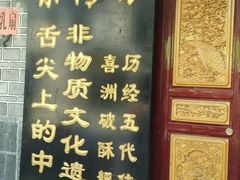 历经五代
喜洲破酥
非物质文化遗
舌尖上的中
乳扇